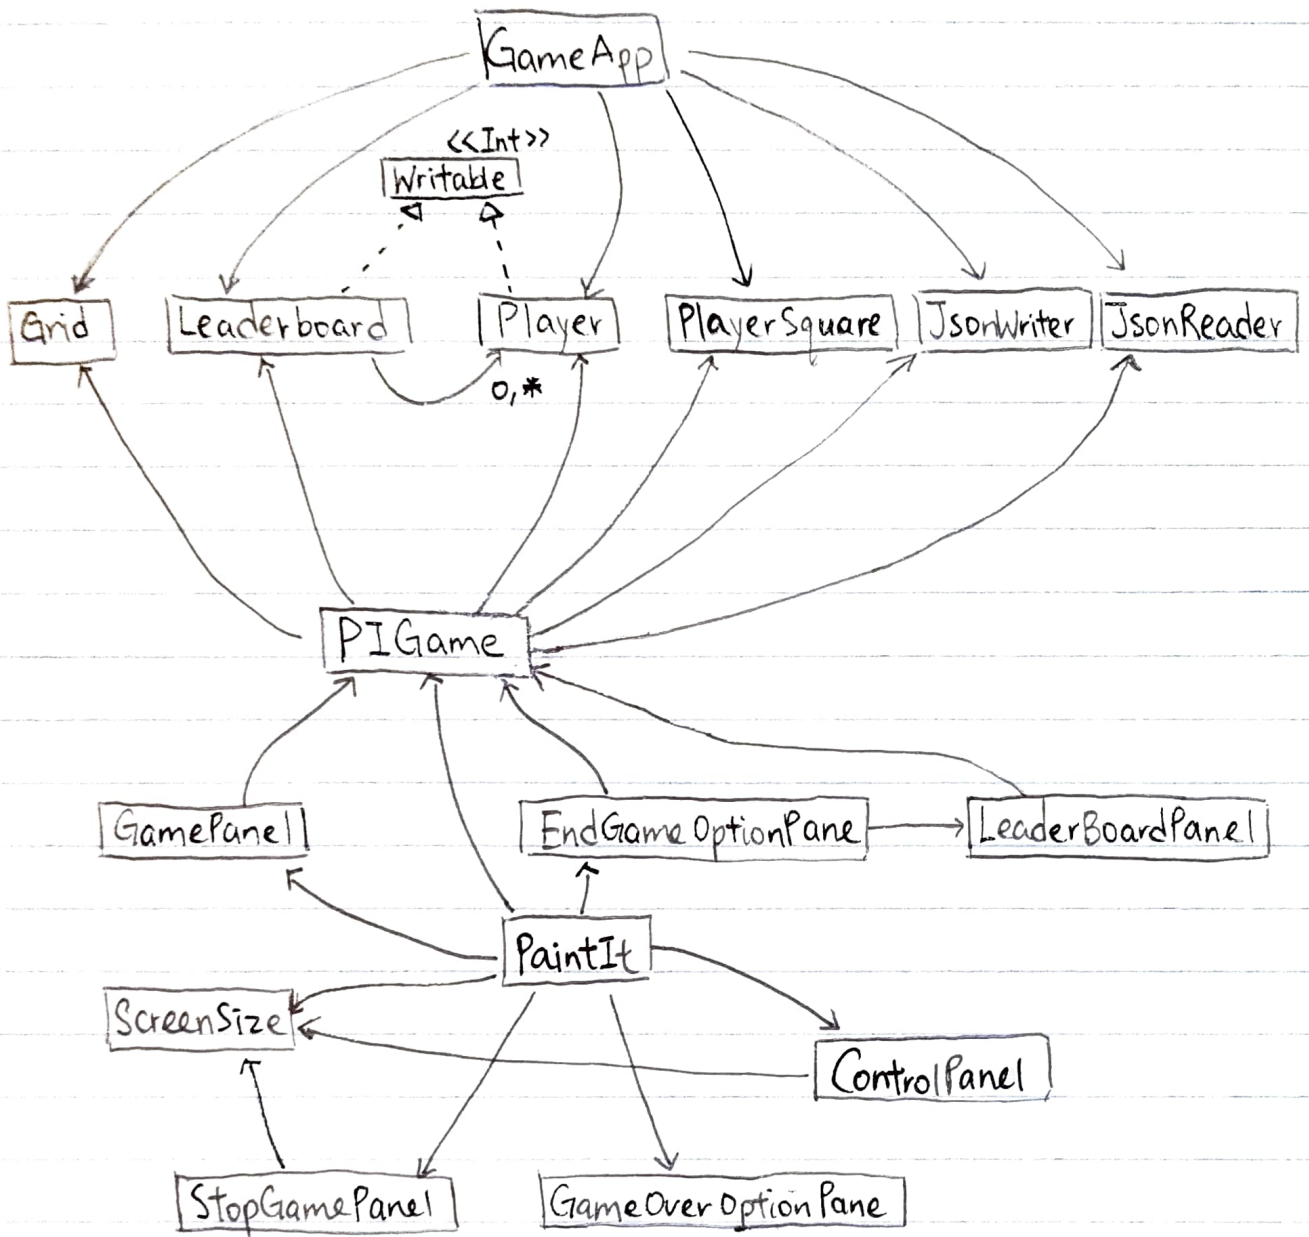 GameApp
<<Int>>
Writable
Grid
Leaderboard
Player
PlayerSquare
JsonWriter
JsonReader
0,*
PIGame
GamePanel
EndGameOptionPane
LeaderBoardPanel
PaintIt
ScreenSize
ControlPanel
StopGamePanel
GameOverOptionPane